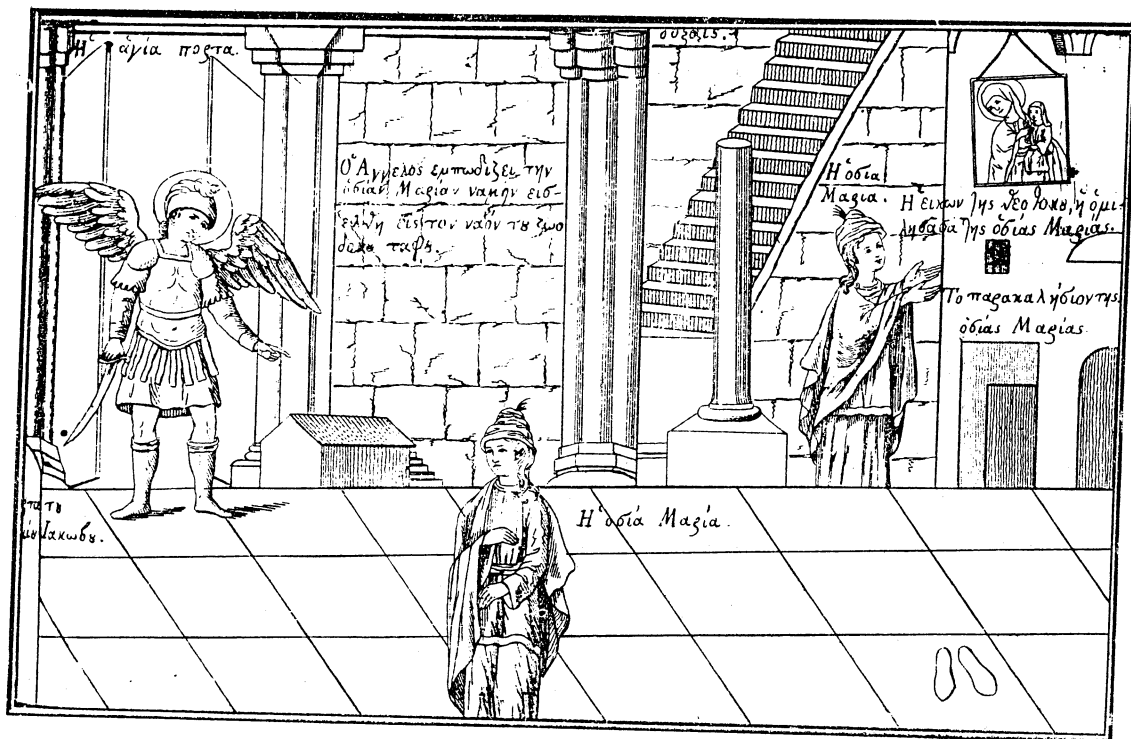 Ἡ ἁγία πορτα.
Ὁ Ἄγγελος εμπωδιζει την
ὁσίαν Μαρίαν να μην εισ-
ελθη εις τον ναὸν τȣ ζωο
δοχȣ ταφȣ.
Ἡ ὁσία
Μαρια.
Ἡ εικων της θεοτοκȣ, ἡ ὁμι-
λησασα της ὁσίας Μαρίας.
Το παρακαλησιον της
ὁσίας Μαρίας.
Ἰακωβȣ.
Ἡ ὁσία Μαρία.